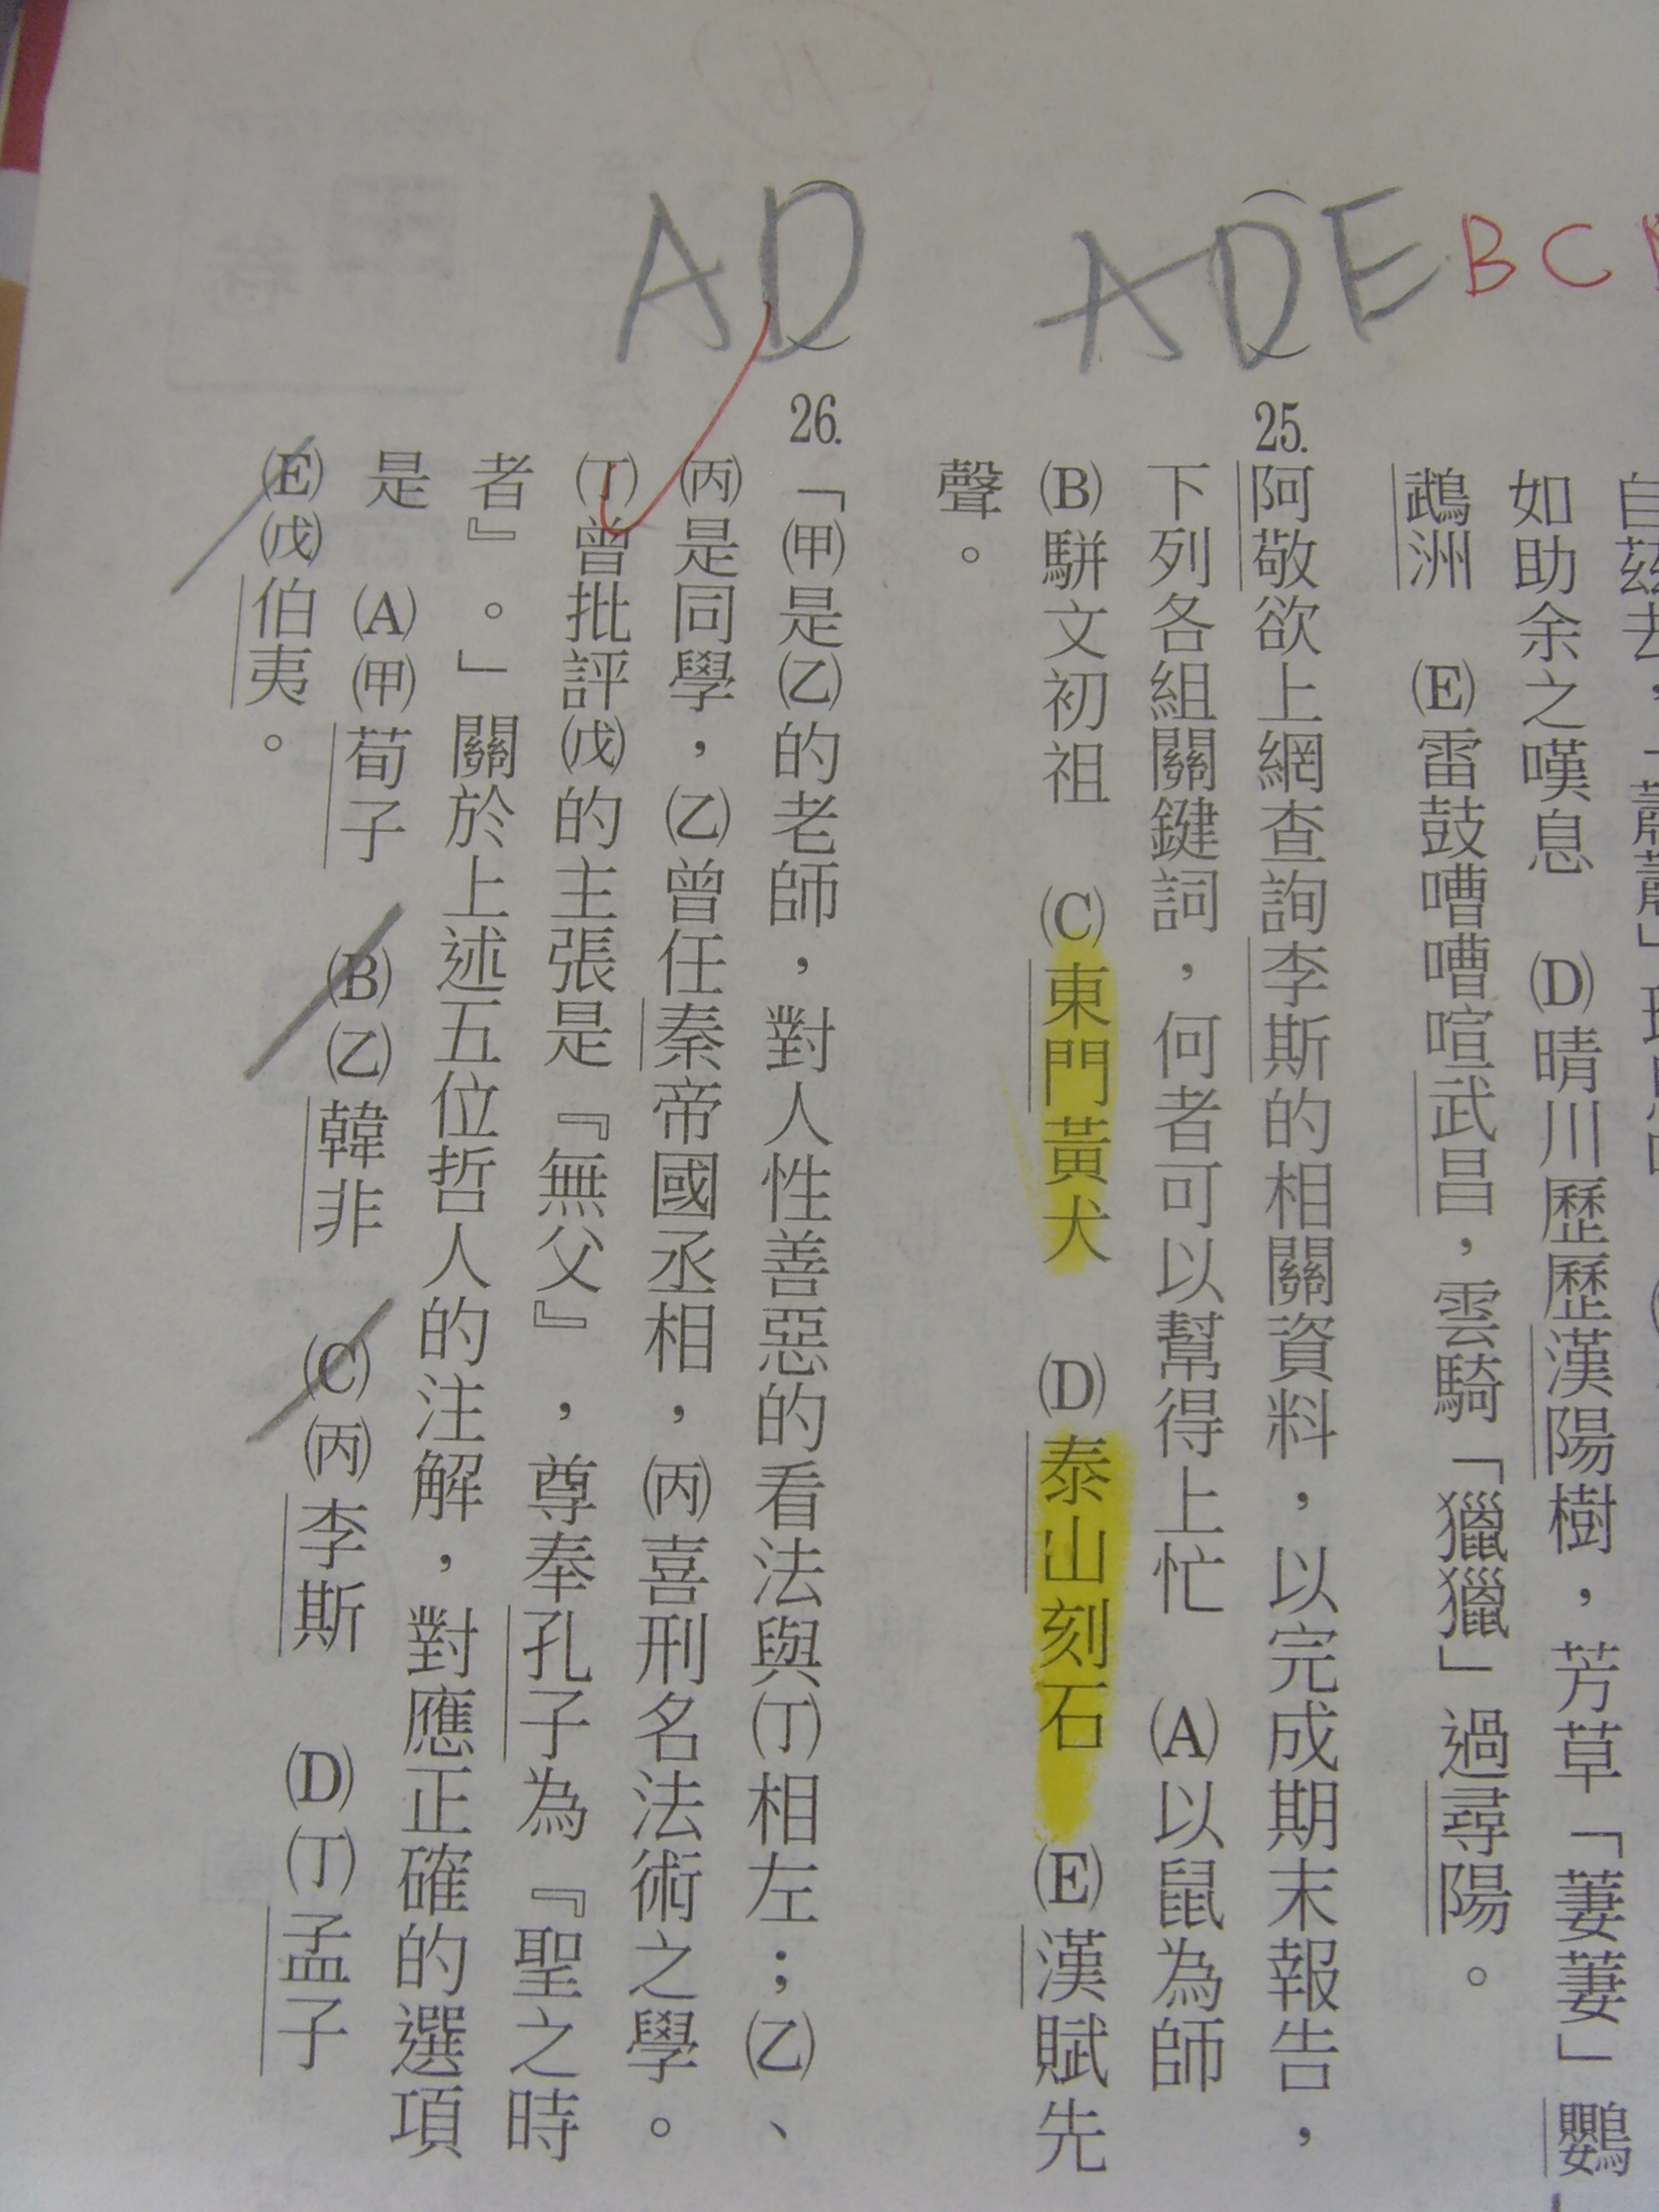 如助余之嘆息　(D)晴川歷歷漢陽樹，芳草「萋萋」鸚
鵡洲　(E)雷鼓嘈嘈喧武昌，雲騎「獵獵」過尋陽。
ADE
BC
25.阿敬欲上網查詢李斯的相關資料，以完成期末報告，
下列各組關鍵詞，何者可以幫得上忙　(A)以鼠為師
(B)駢文初祖　(C)東門黃犬　(D)泰山刻石　(E)漢賦先
聲。
AD
26.「(甲)是(乙)的老師，對人性善惡的看法與(丁)相左；(乙)、
(丙)是同學，(乙)曾任秦帝國丞相，(丙)喜刑名法術之學。
(丁)曾批評(戊)的主張是『無父』，尊奉孔子為『聖之時
者』。」關於上述五位哲人的注解，對應正確的選項
是　(A)(甲)荀子　(B)(乙)韓非　(C)(丙)李斯　(D)(丁)孟子
(E)(戊)伯夷。